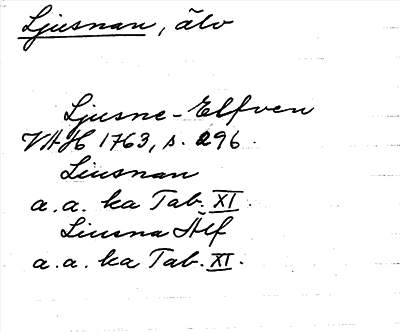 Ljusnan, älv
Ljusne-Elfven
VAH 1763, s. 296.
Liusnan
a.a. ka Tab. XI.
Liusna Älf
a.a. ka Tab. XI.